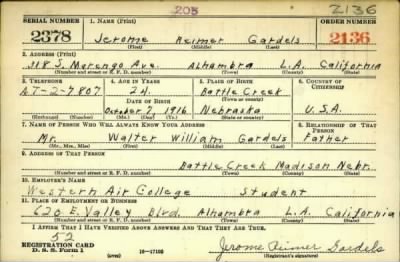 205 2136
SERIAL NUMBER 1. NAME (Print) ORDER NUMBER
2378 Jerome Reimer Gardels 2136
(First) (Middle) (Last)
2. ADDRESS (Print)
318 S. Marengo Ave. Alhambra L.A. California
(Number and street or R. F. D. number) (Town) (County) (State)
3. TELEPHONE 4. AGE IN YEARS 5. PLACE OF BIRTH 6. COUNTRY OF CITIZENSHIP
AT-2-7807 24 Battle Creek
DATE OF BIRTH (Town or county)
October 7, 1916 Nebraska U.S.A.
(Exchange) (Number) (Mo.) (Day) (Yr.) (State or country)
7. NAME OF PERSON WHO WILL ALWAYS KNOW YOUR ADDRESS 8. RELATIONSHIP OF THAT PERSON
Mr. Walter William Gardels Father
(Mr., Mrs., Miss) (First) (Middle) (Last)
9. ADDRESS OF THAT PERSON
Battle Creek Madison Nebr.
(Number and street or R. F. D. number) (Town) (County) (State)
10. EMPLOYER'S NAME
Western Air College Student
11. PLACE OF EMPLOYMENT OR BUSINESS
626 E. Valley Blvd. Alhambra L.A. California
(Number and street or R. F. D. number) (Town) (County) (State)
I AFFIRM THAT I HAVE VERIFIED ABOVE ANSWERS AND THAT THEY ARE TRUE.
52
REGISTRATION CARD
D. S. S. Form 1 (over) 16—17105 Jerome Reimer Gardels
(Registrant's signature)